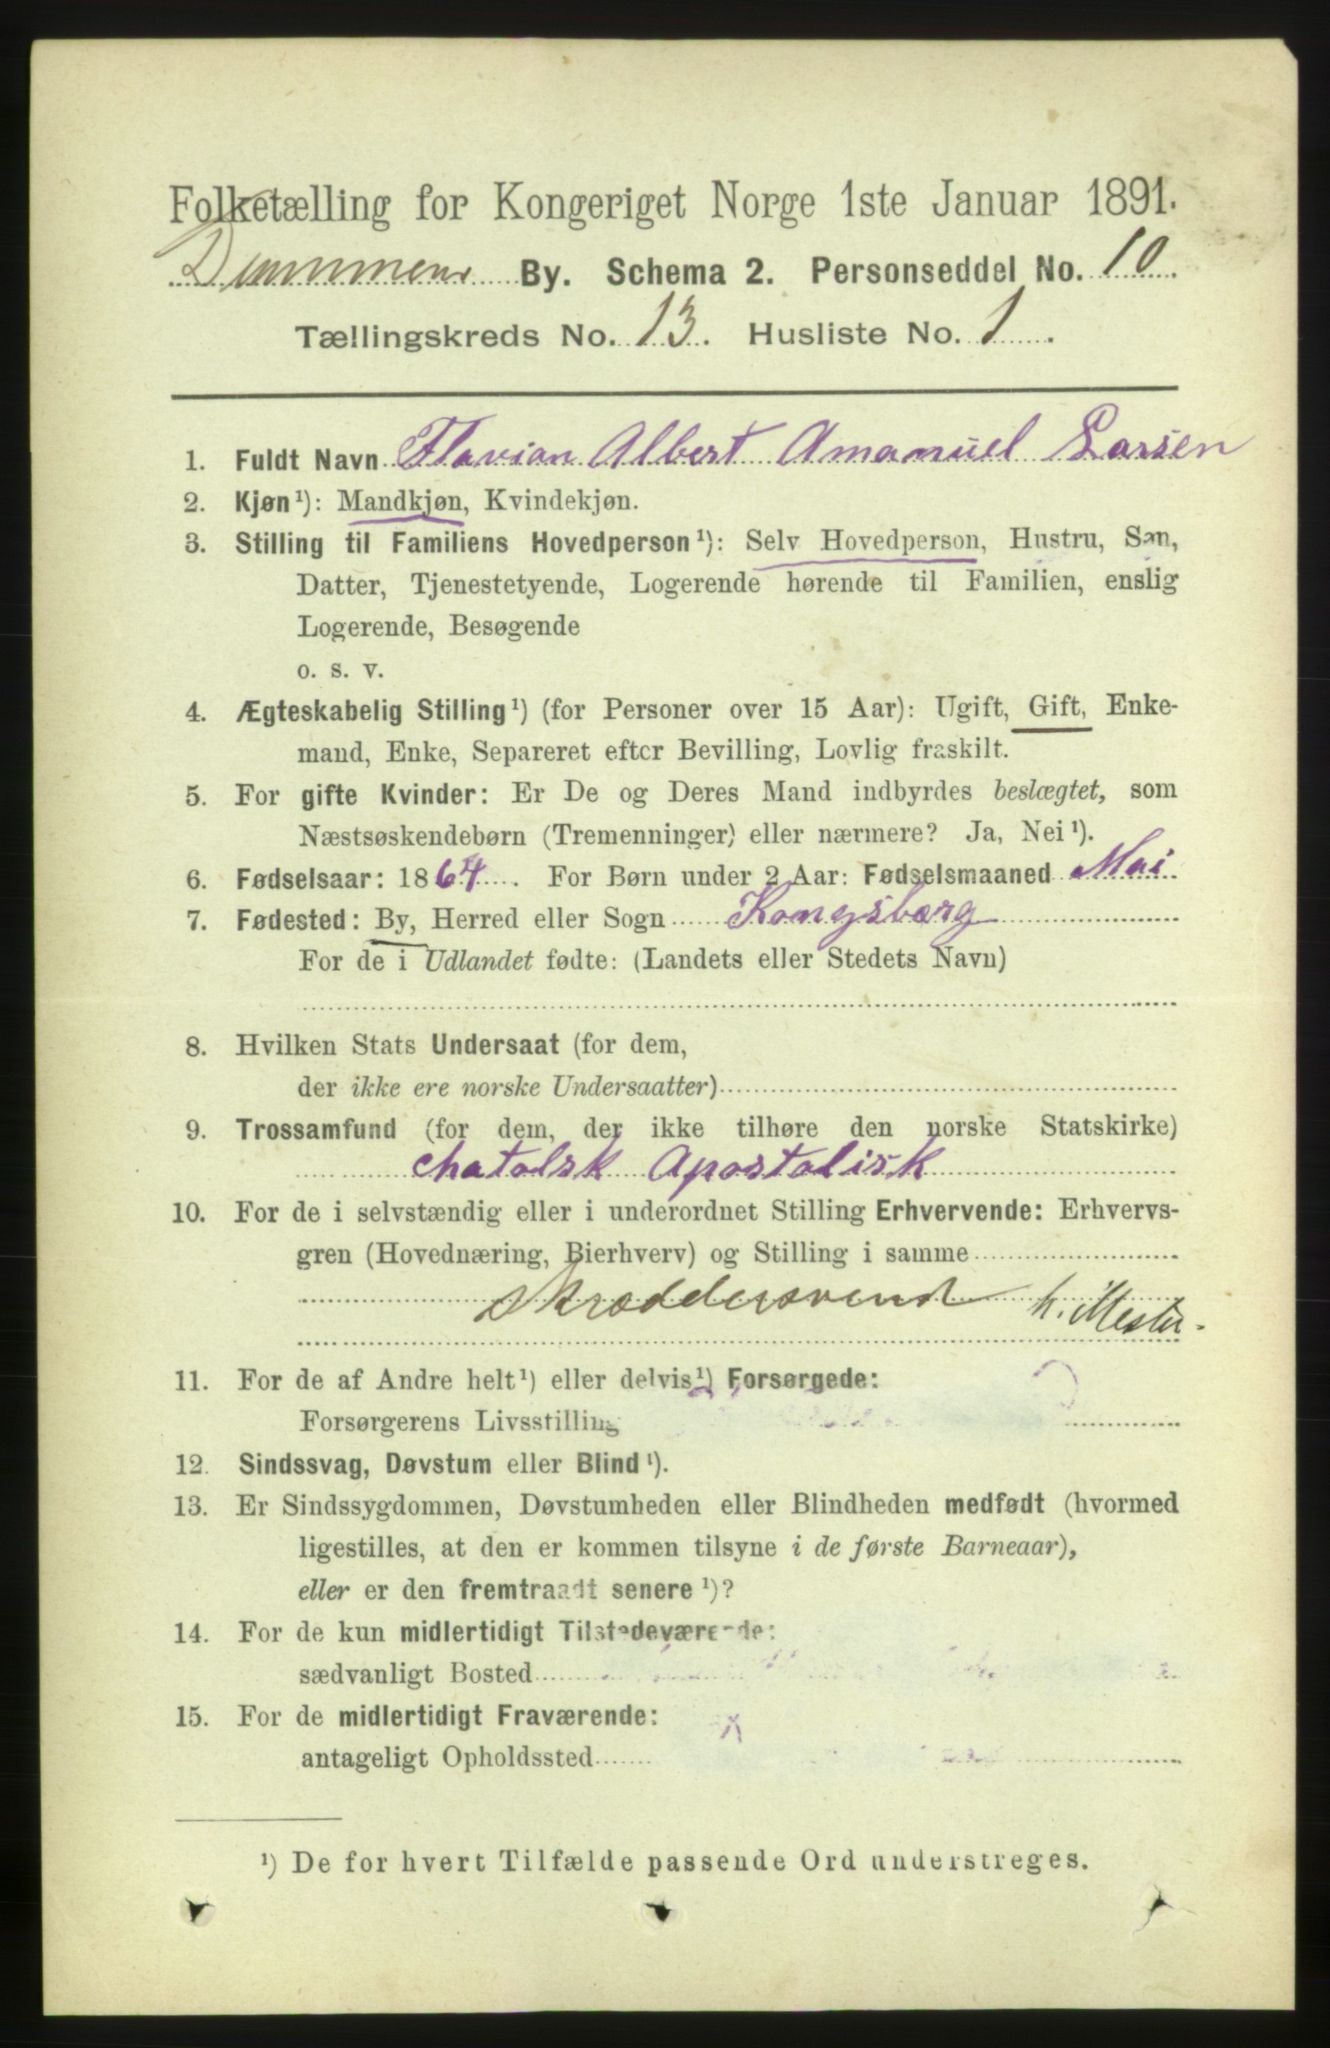 Folketælling for Kongeriget Norge 1ste Januar 1891.
Drammens By. Schema 2. Personseddel No. 10
Tællingskreds No. 13. Husliste No. 1.
1. Fuldt Navn Flavian Albert Amanuel Larsen
2. Kjøn ¹): Mandkjøn, Kvindekjøn.
3. Stilling til Familiens Hovedperson ¹): Selv Hovedperson, Hustru, Søn,
Datter, Tjenestetyende, Logerende hørende til Familien, enslig
Logerende, Besøgende
o. s. v.
4. Ægteskabelig Stilling ¹) (for Personer over 15 Aar): Ugift, Gift, Enke-
mand, Enke, Separeret efter Bevilling, Lovlig fraskilt.
5. For gifte Kvinder: Er De og Deres Mand indbyrdes beslægtet, som
Næstsøskendebørn (Tremenninger) eller nærmere? Ja, Nei ¹).
6. Fødselsaar: 1864. For Børn under 2 Aar: Fødselsmaaned Mai
7. Fødested: By, Herred eller Sogn Kongsbærg
For de i Udlandet fødte: (Landets eller Stedets Navn)
8. Hvilken Stats Undersaat (for dem,
der ikke ere norske Undersaatter)
9. Trossamfund (for dem, der ikke tilhøre den norske Statskirke)
chatolsk Apostolisk
10. For de i selvstændig eller i underordnet Stilling Erhvervende: Erhvervs-
gren (Hovednæring, Bierhverv) og Stilling i samme
Skræddersvend h. Mester.
11. For de af Andre helt ¹) eller delvis ¹) Forsørgede:
Forsørgerens Livsstilling
12. Sindssvag, Døvstum eller Blind ¹).
13. Er Sindssygdommen, Døvstumheden eller Blindheden medfødt (hvormed
ligestilles, at den er kommen tilsyne i de første Barneaar),
eller er den fremtraadt senere ¹)?
14. For de kun midlertidigt Tilstedeværende:
sædvanligt Bosted
15. For de midlertidigt Fraværende:
antageligt Opholdssted
¹) De for hvert Tilfælde passende Ord understreges.